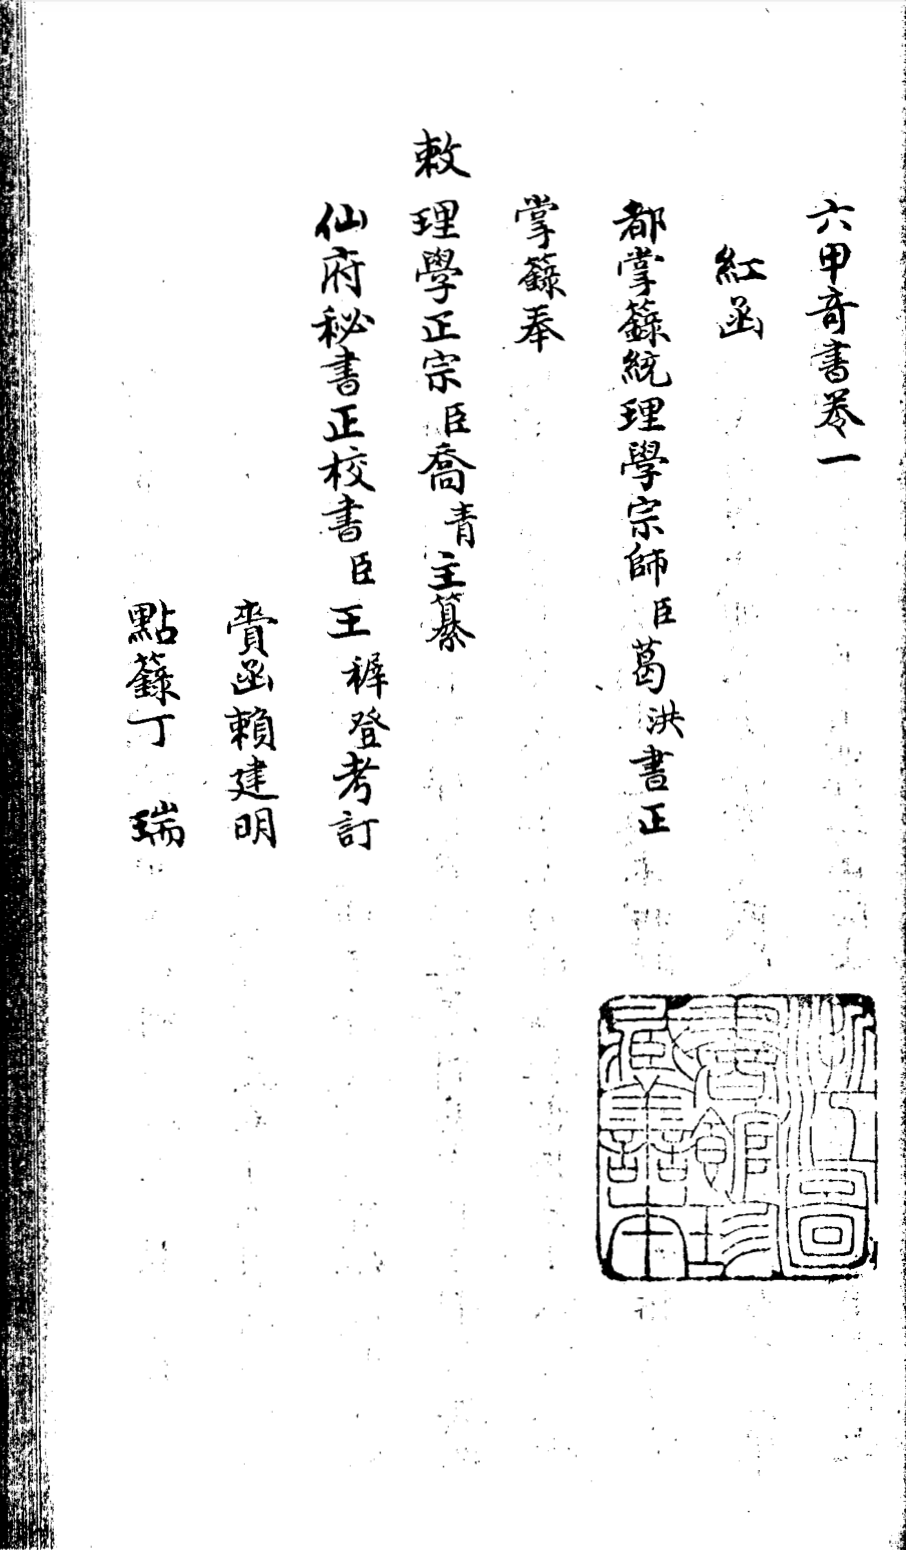 六甲奇書卷一
紅函
都掌籙統理學宗師臣葛洪書正
掌籙奉
敕理學正宗臣喬青主纂
仙府秘書正校書臣王穉登考訂
賫函賴建明
點籙丁瑞
浙江圖
書館珍
藏善本